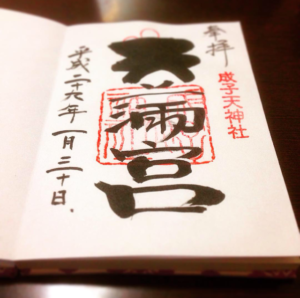 奉拝
成子天神社
天満宮
平成二十六年一月三十日